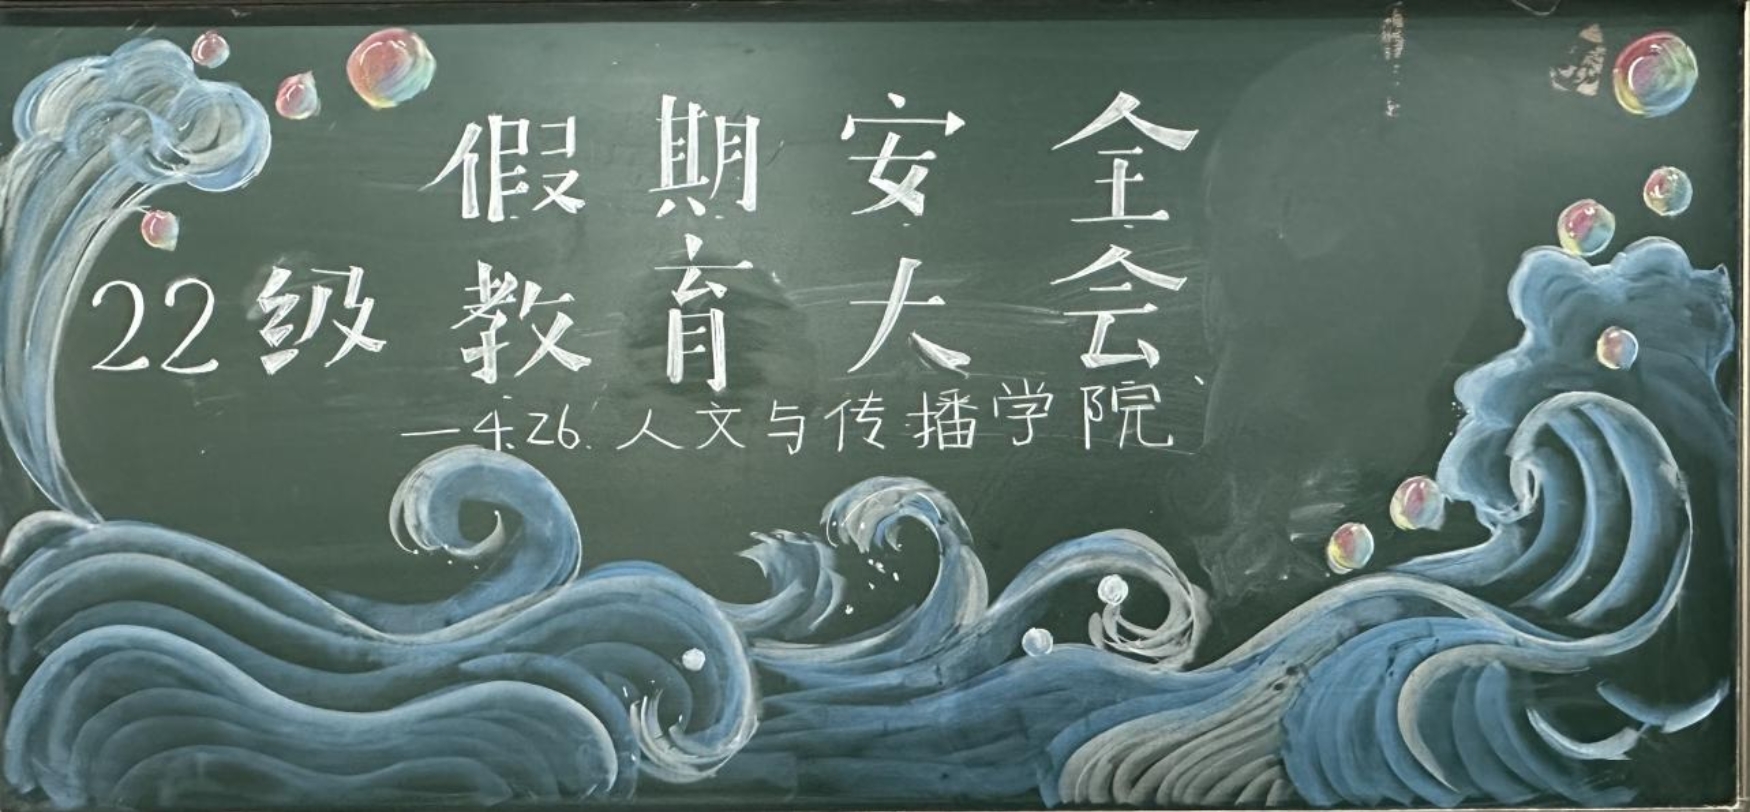 假期安全
22级教育大会
—4.26.人文与传播学院